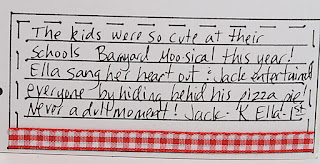 The kids were so cute at their
schools Barnyard Moosical this year!
Ella sang her heart out & Jack entertained
everyone by hiding behid his pizza pie!
Never a dull moment! Jack- K Ella- 1st